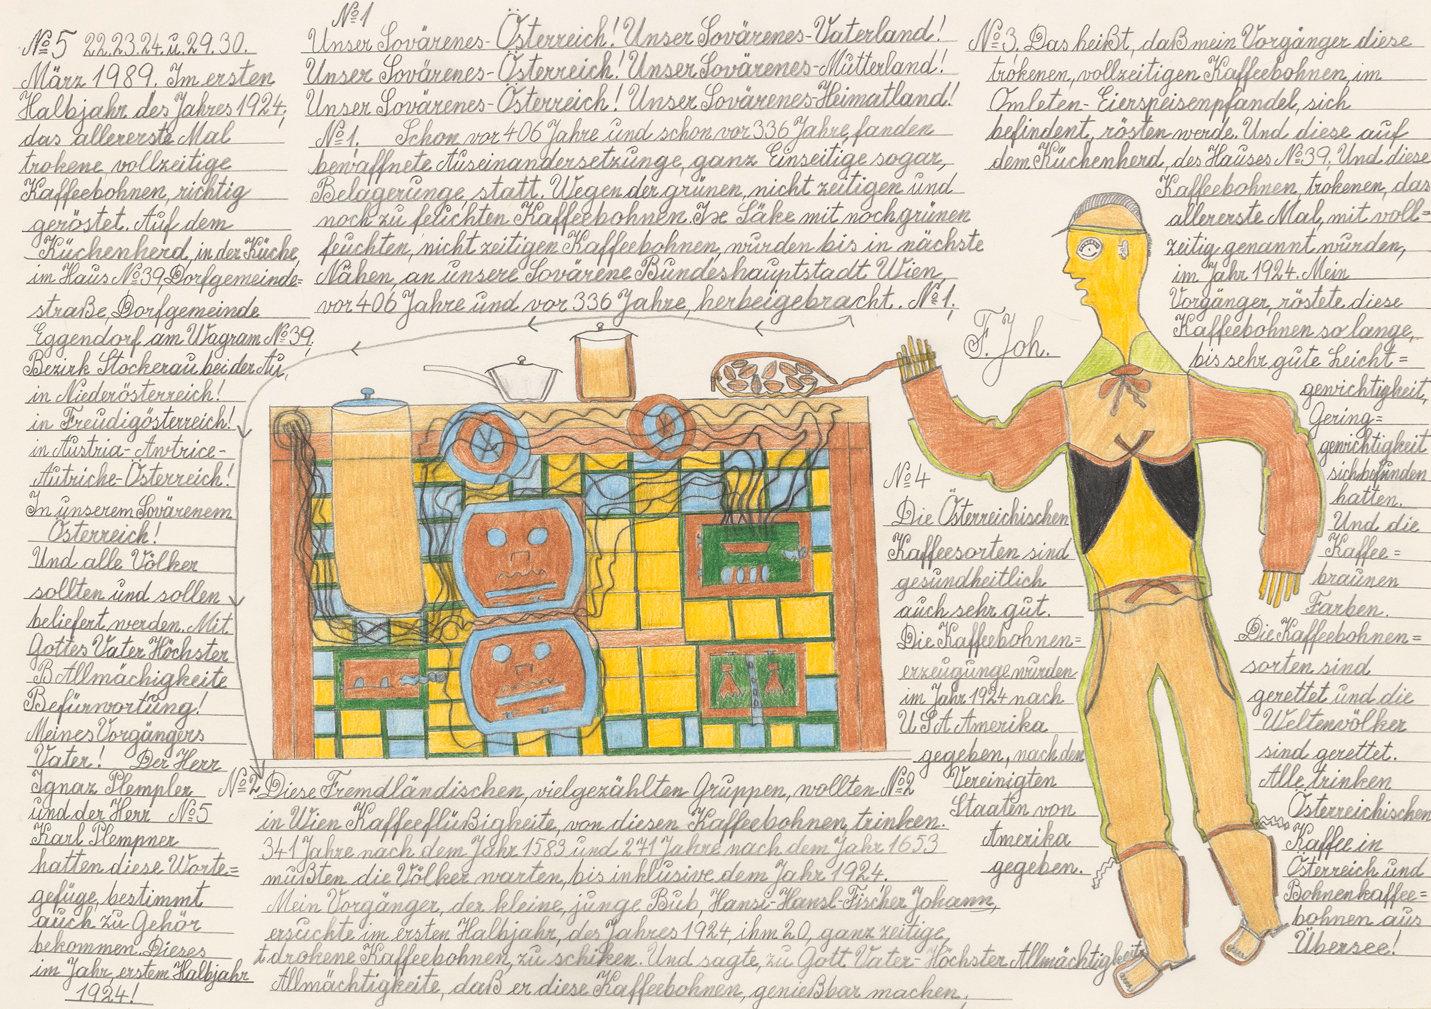 №1
Unser Sovärenes-Österreich! Unser Sovärenes-Vaterland!
Unser Sovärenes-Österreich! Unser Sovärenes-Mutterland!
Unser Sovärenes-Österreich! Unser Sovärenes-Heimatland!
№1. Schon vor 406 Jahre und schon vor 336 Jahre, fanden
bewaffnete Auseinandersetzunge, ganz Einseitige sogar,
Belagerunge statt. Wegen der grünen, nicht zeitigen und
noch zu feuchten Kaffeebohnen. Ix Säke mit noch grünen
feuchten, nicht zeitigen Kaffeebohnen, wurden bis in nächste
Nähen, an unsere Sovärene Bundeshauptstadt Wien,
vor 406 Jahre und vor 336 Jahre, herbeigebracht. №1.
№2 Diese Fremdländischen, vielgezählten Gruppen, wollten №2
in Wien Kaffeeflüßigkeite, von diesen Kaffeebohnen trinken.
341 Jahre nach dem Jahr 1583 und 271 Jahre nach dem Jahr 1653
mußten die Völker warten, bis inklusive dem Jahr 1924.
Mein Vorgänger, der kleine, junge Bub, Hansi-Hansl-Fischer Johann,
ersuchte im ersten Halbjahr, des Jahres 1924, ihm 20, ganz zeitige,
t.drokene Kaffeebohnen, zu schiken. Und sagte, zu Gott Vater-Höchster Allmächtigkeite
Allmächtigkeite, daß er diese Kaffeebohnen, genießbar machen,
№3. Das heißt, daß mein Vorgänger diese
trokenen, vollzeitigen Kaffeebohnen, im
Omleten-Eierspeisenpfandel, sich
befindent, rösten werde. Und diese auf
dem Küchenherd, des Hauses №39. Und diese
Kaffeebohnen, trokenen, das
allererste Mal, mit voll=
zeitig, genannt wurden,
im Jahr 1924. Mein
Vorgänger, röstete diese
Kaffeebohnen so lange,
bis sehr gute Leicht=
gewichtigkeit,
Gering=
gewichtigkeit
sich befunden
hatten.
Und die
Kaffee=
braunen
Farben.
Die Kaffeebohnen=
sorten sind
gerettet und die
Weltenvölker
sind gerettet.
Alle trinken
Österreichischen
Kaffee in
Österreich und
Bohnenkaffee=
bohnen aus
Übersee!
F. Joh.
№4
Die Österreichischen
Kaffeesorten sind
gesundheitlich
auch sehr gut.
Die Kaffeebohnen=
erzeugunge wurden
im Jahr 1924 nach
U.S.A. Amerika
gegeben, nach den
Vereinigten
Staaten von
Amerika
gegeben.
№5 22.23.24.u.29.30.
März 1989. Im ersten
Halbjahr des Jahres 1924,
das allererste Mal
trokene, vollzeitige
Kaffeebohnen, richtig
geröstet. Auf dem
Küchenherd, in der Küche,
im Haus №39 Dorfgemeinde=
straße, Dorfgemeinde
Eggendorf am Wagram №39.
Bezirk Stockerau bei der Au,
in Niederösterreich!
in Freudigösterreich!
in Austria-Antrice-
Autriche-Österreich!
In unserem Sovärenem
Österreich!
Und alle Völker
sollten und sollen
beliefert werden. Mit
Gottes Vater Höchster
B Allmächigkeite
Befürwortung!
Meines Vorgängers
Vater! Der Herr
Ignaz Plempler
und der Herr №5
Karl Plempner
hatten diese Worte=
gefüge, bestimmt
auch zu Gehör
bekommen. Dieses
im Jahr, erstem Halbjahr
1924!